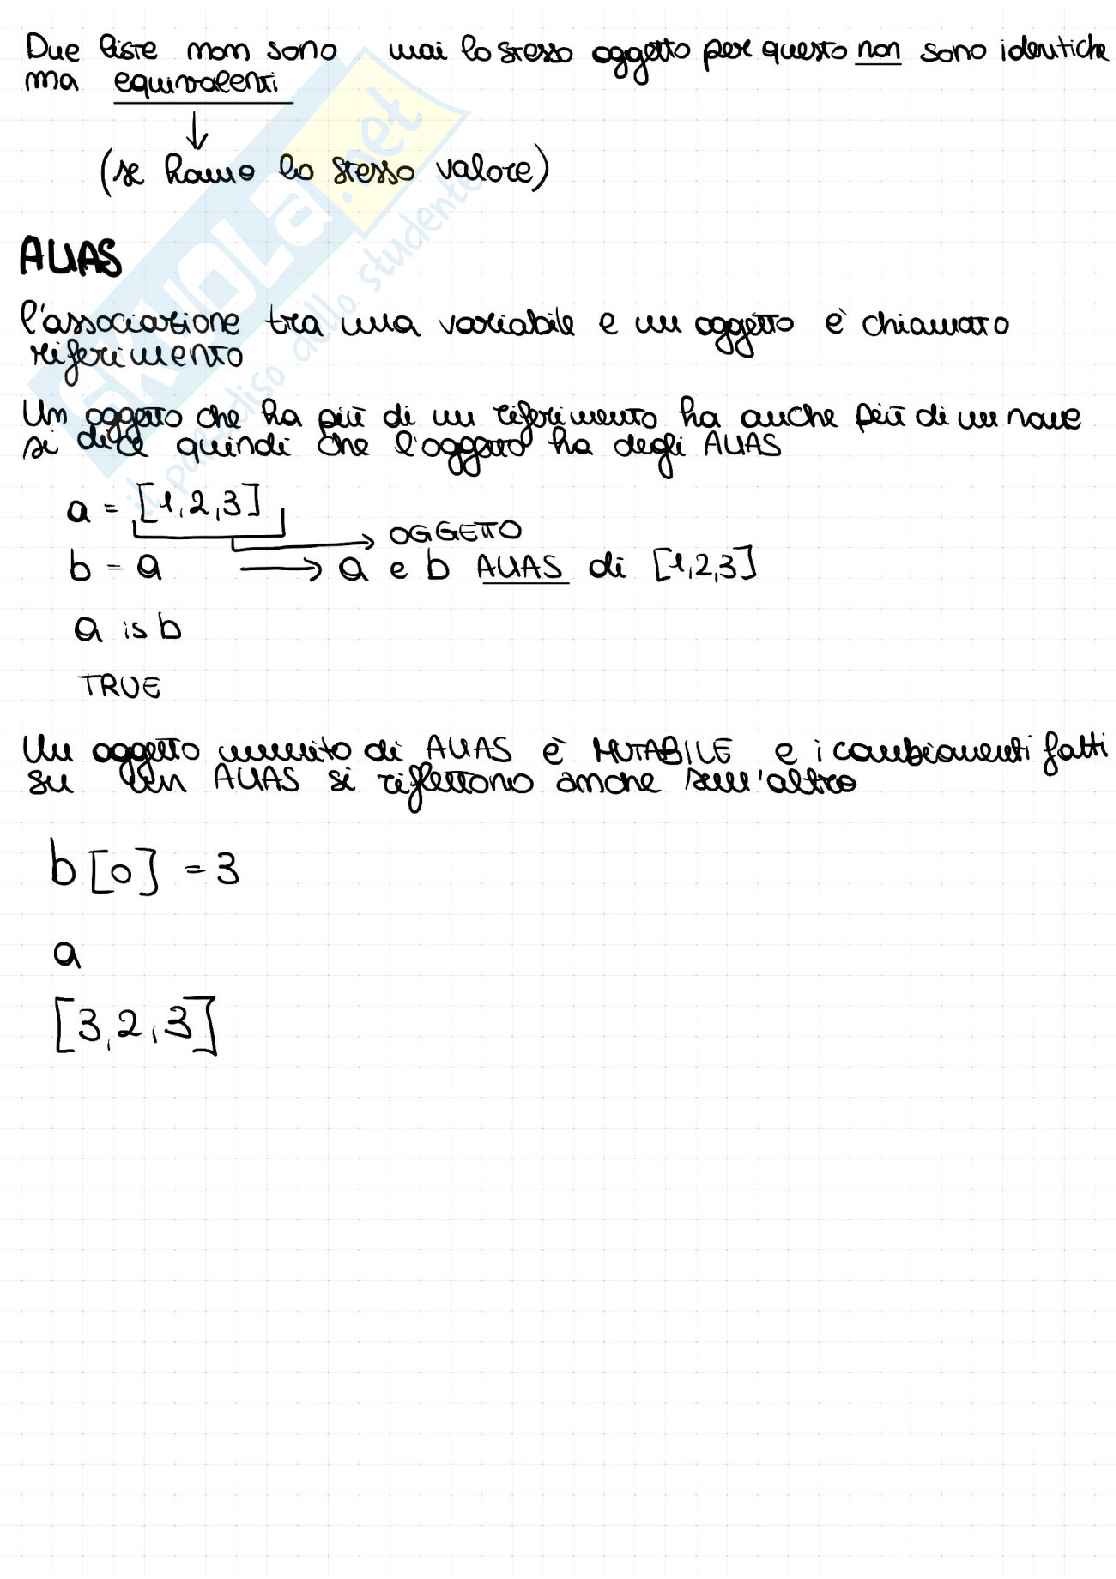 Due liste non sono mai lo stesso oggetto per questo non sono identiche
ma equivalenti
(se hanno lo stesso valore)
ALIAS
l'associazione tra una variabile e un oggetto è chiamato
riferimento
Un oggetto che ha più di un riferimento ha anche più di un nome
si dice quindi che l'oggetto ha degli ALIAS
a = [1,2,3]
OGGETTO
b = a → a e b ALIAS di [1,2,3]
a is b
TRUE
Un oggetto munito di ALIAS è MUTABILE e i cambiamenti fatti
su un ALIAS si riflettono anche sull'altro
b[0] = 3
a
[3,2,3]
SKUOLA.net
il paradiso dello studente